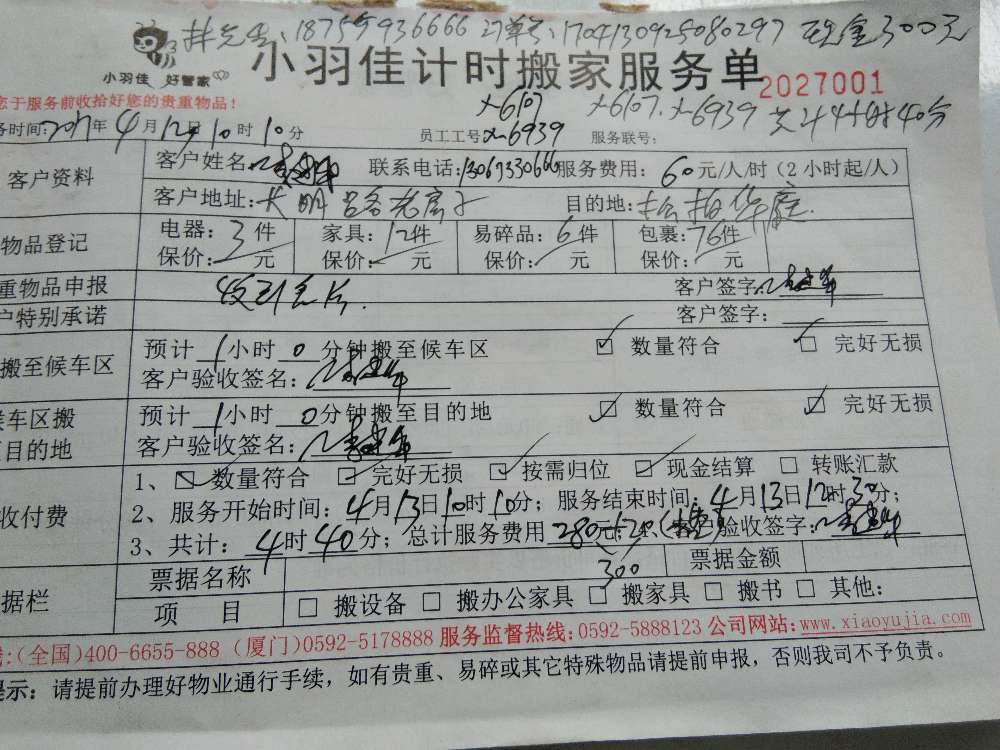 林先生:18759936666 订单号:1704130925080297 现金300元
小羽佳 好管家
小羽佳计时搬家服务单 2027001
您于服务前收拾好您的贵重物品!
x-6107 x-6107. x-6939 共4小时40分
务时间:2017年4月12日10时10分 员工工号 x-6939 服务联号:
客户资料 客户姓名: 联系电话:13067330666 服务费用: 60元/人/时(2小时起/人)
客户地址: 长明路 目的地: 松柏华庭
物品登记 电器:3件 家具:12件 易碎品:6件 包裹:76件
保价: 元 保价: 元 保价: 元 保价: 元
重物品申报 客户签字:
户特别承诺 客户签字:
搬至候车区 预计1小时0分钟搬至候车区 数量符合 完好无损
客户验收签名:
候车区搬 预计1小时0分钟搬至目的地 数量符合 完好无损
目的地 客户验收签名:
收付费 1、 数量符合 完好无损 按需归位 现金结算 转账汇款
2、服务开始时间:4月13日10时10分;服务结束时间:4月13日12时30分;
3、共计:4时40分;总计服务费用 280元 客户验收签字:
300
据栏 票据名称 票据金额
项 目 搬设备 搬办公家具 搬家具 搬书 其他:
:(全国)400-6655-888 (厦门)0592-5178888 服务监督热线:0592-5888123 公司网站:www.xiaoyujia.com
提示:请提前办理好物业通行手续,如有贵重、易碎或其它特殊物品请提前申报,否则我司不予负责。